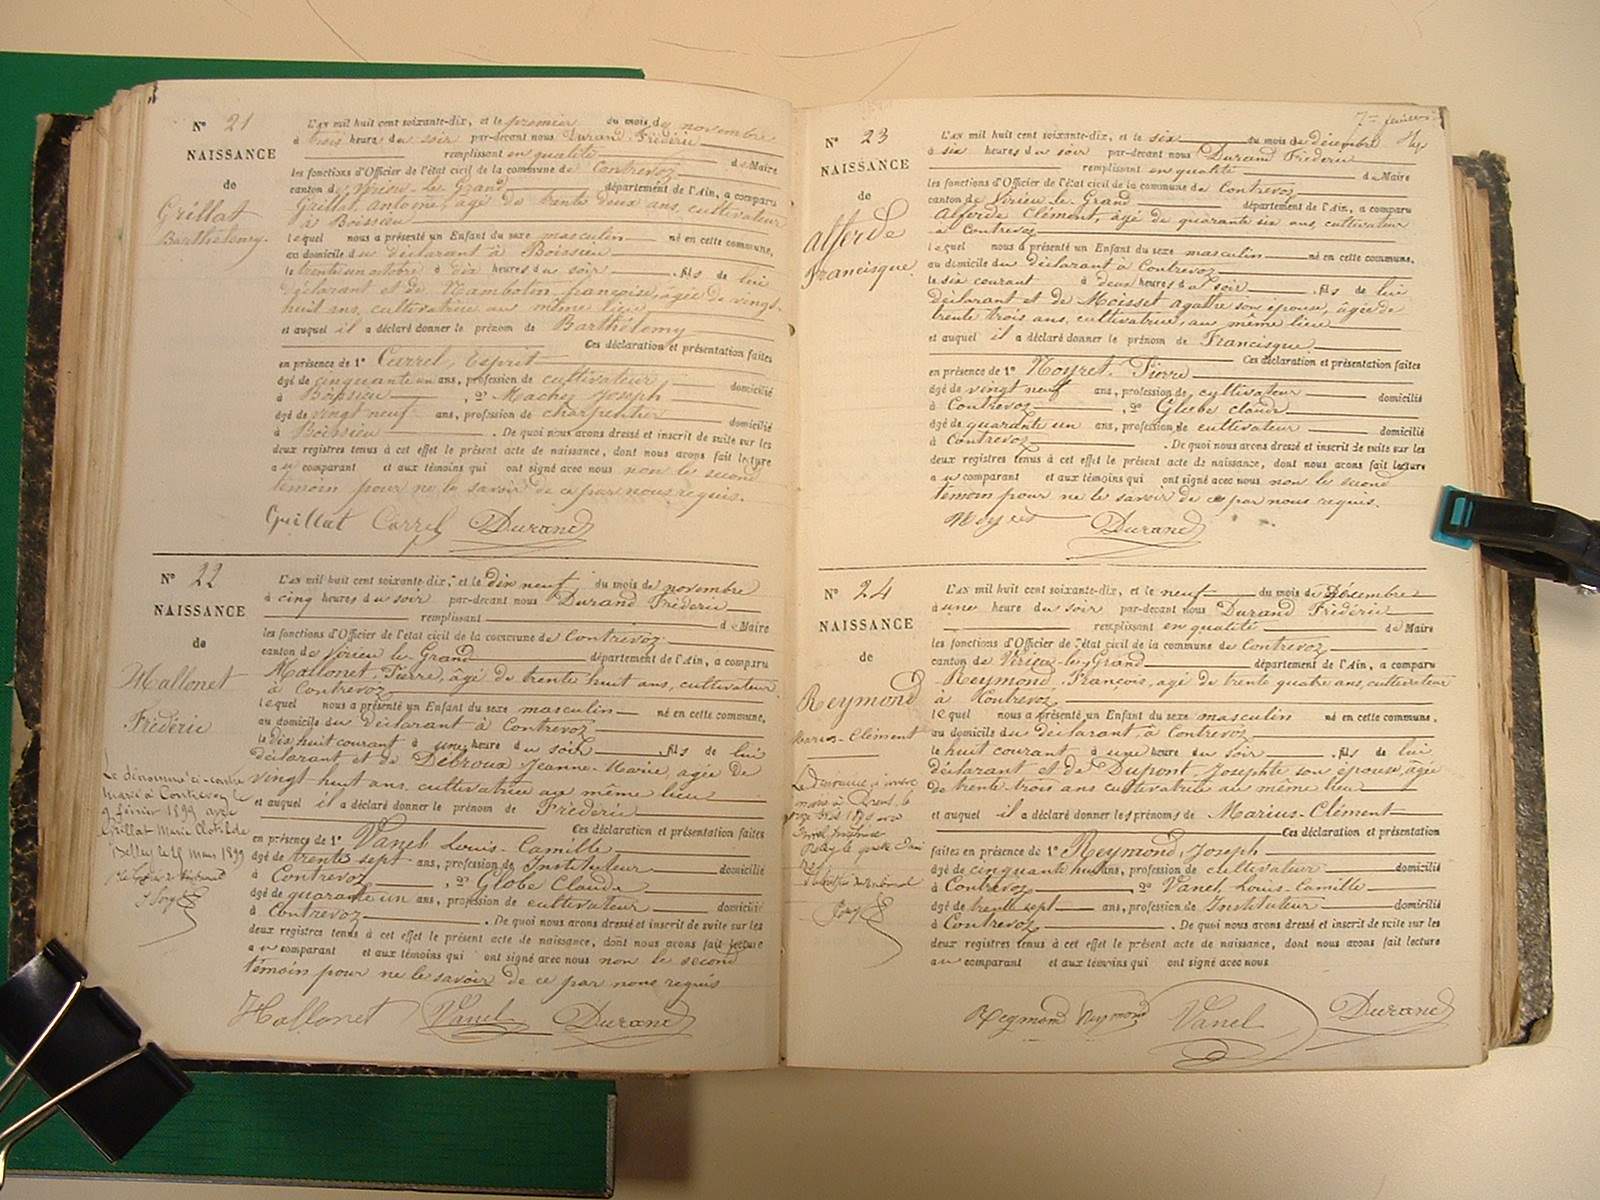 N° 21
NAISSANCE
de
Grillat
Barthélemy.
L'an mil huit cent soixante-dix, et le premier du mois de novembre
à trois heures du soir par-devant nous Durand Frédéric
remplissant en qualité de Maire
les fonctions d'Officier de l'état civil de la commune de Contrevoz
canton de Virieu-le-Grand département de l'Ain, a comparu
Grillat, antoine, âgé de trente deux ans, cultivateur
à Boissieu
lequel nous a présenté un Enfant du sexe masculin né en cette commune,
au domicile du déclarant à Boissieu
le trente un octobre à dix heures du soir fils de lui
déclarant et de françoise, âgée de vingt-
huit ans, cultivatrice au même lieu
et auquel il a déclaré donner le prénom de Barthélemy
Ces déclaration et présentation faites
en présence de 1° Carrel, Esprit
âgé de cinquante un ans, profession de cultivateur, domicilié
à Boissieu, 2° Machej Joseph
âgé de vingt neuf ans, profession de charpentier domicilié
à Boissieu. De quoi nous avons dressé et inscrit de suite sur les
deux registres tenus à cet effet le présent acte de naissance, dont nous avons fait lecture
au comparant et aux témoins qui ont signé avec nous non le second
témoin pour ne le savoir de ce par nous requis.
Grillat Carrel Durand
N° 22
NAISSANCE
de
Mallonet
Frédéric
Le dénommé ci-contre
marié à Contrevoz le
9 février 1899 avec
Grillat Marie Clotilde
Belley le 25 mars 1899
L'an mil huit cent soixante-dix, et le dix neuf du mois de novembre
à cinq heures du soir par-devant nous Durand Frédéric
remplissant de Maire
les fonctions d'Officier de l'état civil de la commune de Contrevoz
canton de Virieu-le-Grand département de l'Ain, a comparu
Mallonet, Pierre, âgé de trente huit ans, cultivateur
à Contrevoz
lequel nous a présenté un Enfant du sexe masculin né en cette commune,
au domicile du déclarant à Contrevoz
le dix huit courant à une heure du soir fils de lui
déclarant et de Débroux Jeanne-Marie, âgée de
vingt huit ans, cultivatrice au même lieu
et auquel il a déclaré donner le prénom de Frédéric
Ces déclaration et présentation faites
en présence de 1° Vanel Louis-Camille
âgé de trente sept ans, profession de Instituteur domicilié
à Contrevoz, 2° Globe Claude
âgé de quarante un ans, profession de cultivateur domicilié
à Contrevoz. De quoi nous avons dressé et inscrit de suite sur les
deux registres tenus à cet effet le présent acte de naissance, dont nous avons fait lecture
au comparant et aux témoins qui ont signé avec nous non le second
témoin pour ne le savoir de ce par nous requis
Mallonet Vanel Durand
7me feuillet
N° 23
NAISSANCE
de
Alferde
Francisque.
L'an mil huit cent soixante-dix, et le six du mois de décembre
à six heures du soir par-devant nous Durand Frédéric
remplissant en qualité de Maire
les fonctions d'Officier de l'état civil de la commune de Contrevoz
canton de Virieu-le-Grand département de l'Ain, a comparu
Alferde Clément, âgé de quarante six ans, cultivateur
à Contrevoz
lequel nous a présenté un Enfant du sexe masculin né en cette commune,
au domicile du déclarant à Contrevoz
le six courant à deux heures du soir fils de lui
déclarant et de Moisset agathe son épouse, âgée de
trente trois ans, cultivatrice, au même lieu
et auquel il a déclaré donner le prénom de Francisque
Ces déclaration et présentation faites
en présence de 1° Noyret, Pierre
âgé de vingt neuf ans, profession de cultivateur domicilié
à Contrevoz, 2° Globe Claude
âgé de quarante un ans, profession de cultivateur domicilié
à Contrevoz. De quoi nous avons dressé et inscrit de suite sur les
deux registres tenus à cet effet le présent acte de naissance, dont nous avons fait lecture
au comparant et aux témoins qui ont signé avec nous non le second
témoin pour ne le savoir de ce par nous requis.
Noyret Durand
N° 24
NAISSANCE
de
Reymond
Marius-Clément
L'an mil huit cent soixante-dix, et le neuf du mois de Décembre
à une heure du soir par-devant nous Durand Frédéric
remplissant en qualité de Maire
les fonctions d'Officier de l'état civil de la commune de Contrevoz
canton de Virieu-le-Grand département de l'Ain, a comparu
Reymond, François, âgé de trente quatre ans, cultivateur
à Contrevoz
lequel nous a présenté un Enfant du sexe masculin né en cette commune,
au domicile du déclarant à Contrevoz
le huit courant à une heure du soir fils de lui
déclarant et de Dupont Josephte son épouse, âgée
de trente trois ans cultivatrice au même lieu
et auquel il a déclaré donner les prénoms de Marius-Clément
Ces déclaration et présentation
faites en présence de 1° Reymond, Joseph
âgé de cinquante huit ans, profession de cultivateur domicilié
à Contrevoz, 2° Vanel Louis-Camille
âgé de trente sept ans, profession de Instituteur domicilié
à Contrevoz. De quoi nous avons dressé et inscrit de suite sur les
deux registres tenus à cet effet le présent acte de naissance, dont nous avons fait lecture
au comparant et aux témoins qui ont signé avec nous
Reymond Reymond Vanel Durand